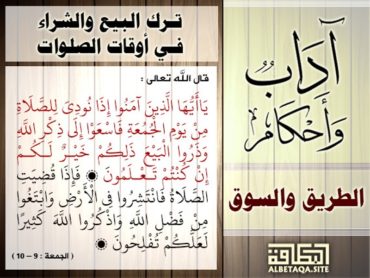 آدَابٌ
وَأَحْكَامٌ
الطريق والسوق
تـرك البيع والشراء
فـي أوقات الصلوات
قال اللَّه تعالى :
يَا أَيُّهَا الَّذِينَ آمَنُوا إِذَا نُودِيَ لِلصَّلَاةِ
مِنْ يَوْمِ الْجُمُعَةِ فَاسْعَوْا إِلَى ذِكْرِ اللَّهِ
وَذَرُوا الْبَيْعَ ذَلِكُمْ خَيْرٌ لَكُمْ
إِنْ كُنْتُمْ تَعْلَمُونَ ۞ فَإِذَا قُضِيَتِ
الصَّلَاةُ فَانْتَشِرُوا فِي الْأَرْضِ وَابْتَغُوا
مِنْ فَضْلِ اللَّهِ وَاذْكُرُوا اللَّهَ كَثِيرًا
لَعَلَّكُمْ تُفْلِحُونَ ۞
( الجمعة : 9 – 10 )
البطاقة
ALBETAQA.SITE